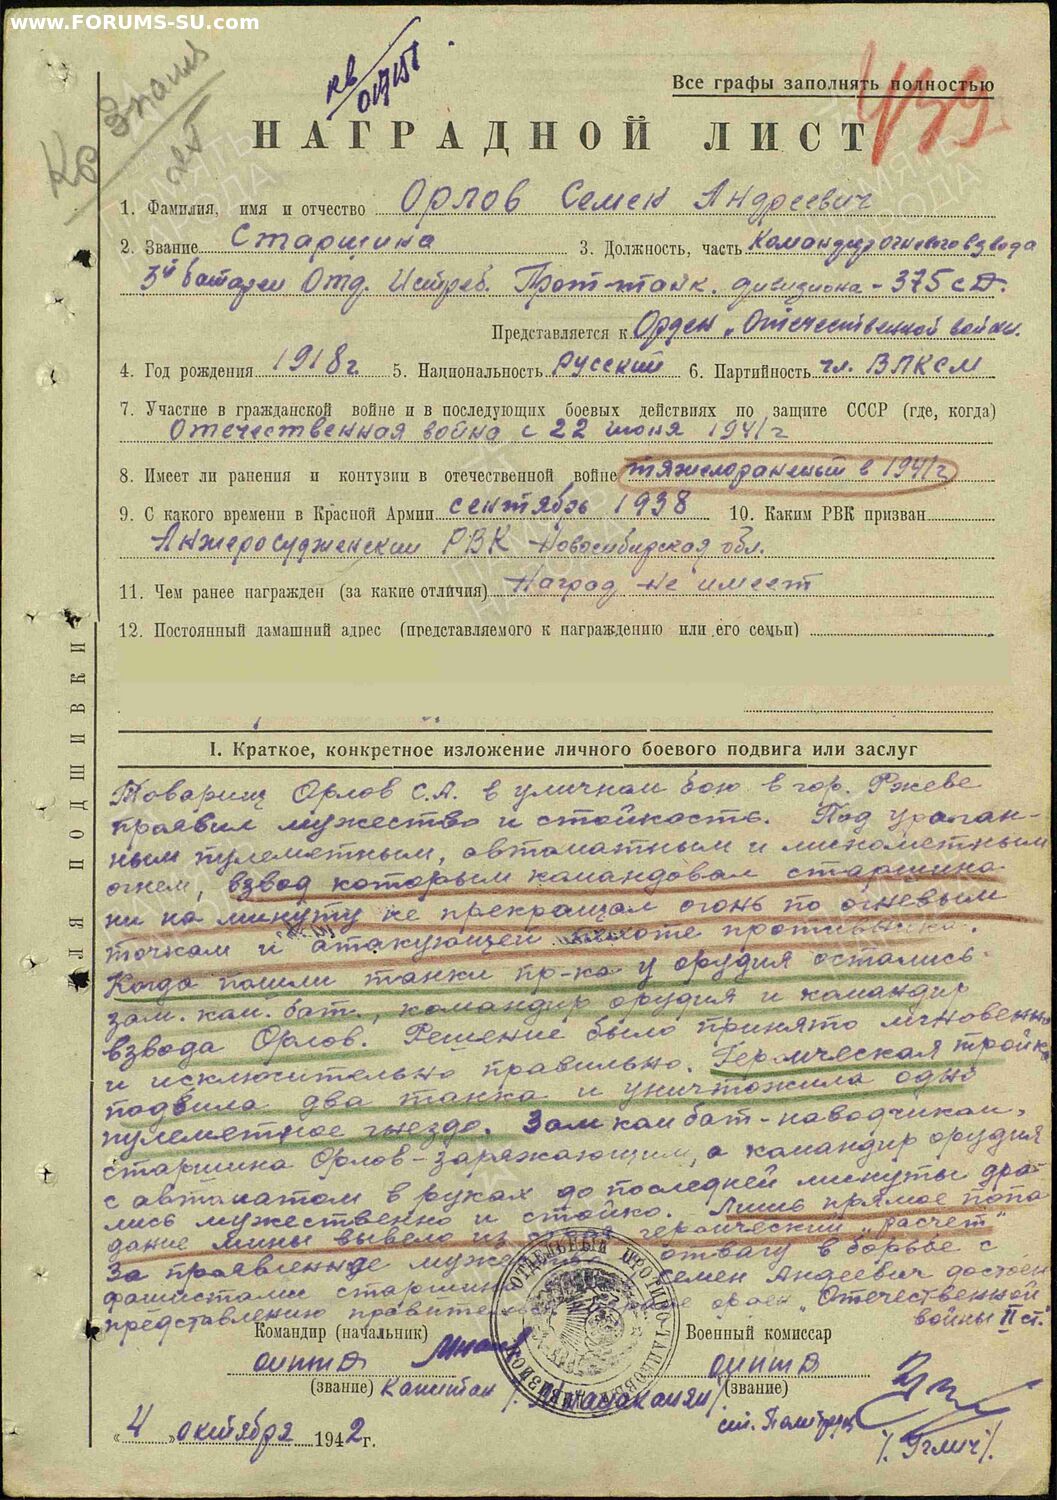 www.FORUMS-SU.com
кв
017151
Ко
Знамя
Все графы заполнять полностью
439
НАГРАДНОЙ ЛИСТ
1. Фамилия, имя и отчество Орлов Семен Андреевич
2. Звание Старшина 3. Должность, часть Командир огневого взвода
3й батареи Отд. Истреб. Прот-танк. дивизиона - 375 сд.
Представляется к Орден „Отечественной войны.
4. Год рождения 1918г 5. Национальность Русский 6. Партийность чл. ВЛКСМ
7. Участие в гражданской войне и в последующих боевых действиях по защите СССР (где, когда)
Отечественная война с 22 июня 1941г
8. Имеет ли ранения и контузии в отечественной войне тяжелораненый в 1941г
9. С какого времени в Красной Армии сентябрь 1938 10. Каким РВК призван
Анжеросудженский РВК Новосибирская обл.
11. Чем ранее награжден (за какие отличия) Наград не имеет
12. Постоянный дамашний адрес (представляемого к награждению или его семьи)
ДЛЯ ПОДШИВКИ
I. Краткое, конкретное изложение личного боевого подвига или заслуг
Товарищ Орлов С.А. в уличном бою в гор. Ржеве
проявил мужество и стойкость. Под ураган-
ным пулеметным, автоматным и минометным
огнем, взвод которым командовал старшина
ни на минуту не прекращал огонь по огневым
точкам и атакующей пехоте противника.
Когда пошли танки пр-ка у орудия остались
зам. ком. бат., командир орудия и командир
взвода Орлов. Решение было принято мгновенно
и исключительно правильно. Героическая тройка
подбила два танка и уничтожила одно
пулеметное гнездо. Зам комбат-наводчиком,
старшина Орлов-заряжающим, а командир орудия
с автоматом в руках до последней минуты дра-
лись мужественно и стойко. Лишь прямое попа
дание мины вывело из строя героический „расчет"
За проявленное мужество отвагу в борьбе с
фашистами старшина Семен Андеевич достоен
представлению правитель ордена „Отечественной
войны II ст."
Командир (начальник) Военный комиссар
ОИПТД ОИПТД
(звание) Капитан (звание)
ст. Политрук
ОТДЕЛЬНЫЙ ПРОТИВО-ТАНКОВЫЙ ДИВИЗИОН
„4" октября 1942 г.